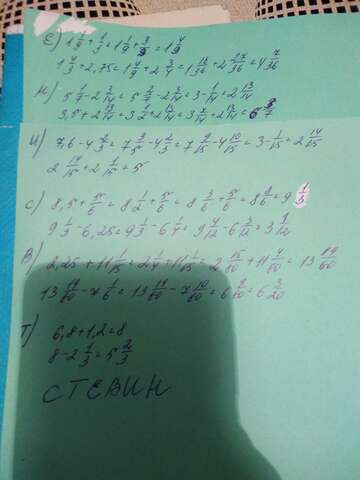 Е) 1 1/9 + 1/3 = 1 1/9 + 3/9 = 1 4/9
1 4/9 + 2,75 = 1 4/9 + 2 3/4 = 1 16/36 + 2 27/36 = 4 7/36
Н) 5 1/7 - 2 3/14 = 5 2/14 - 2 3/14 = 3 - 1/14 = 2 13/14
3,5 + 2 13/14 = 3 1/2 + 2 13/14 = 3 7/14 + 2 13/14 = 6 3/7
И) 7,6 - 4 2/3 = 7 3/5 - 4 2/3 = 7 9/15 - 4 10/15 = 3 - 1/15 = 2 14/15
2 14/15 + 2 1/15 = 5
С) 8,5 + 5/6 = 8 1/2 + 5/6 = 8 3/6 + 5/6 = 8 8/6 = 9 1/3
9 1/3 - 6,25 = 9 1/3 - 6 1/4 = 9 4/12 - 6 3/12 = 3 1/12
В) 2,25 + 11 1/15 = 2 1/4 + 11 1/15 = 2 15/60 + 11 4/60 = 13 19/60
13 19/60 - 7 1/6 = 13 19/60 - 7 10/60 = 6 9/60 = 6 3/20
Т) 6,8 + 1,2 = 8
8 - 2 1/3 = 5 2/3
СТЕВИН